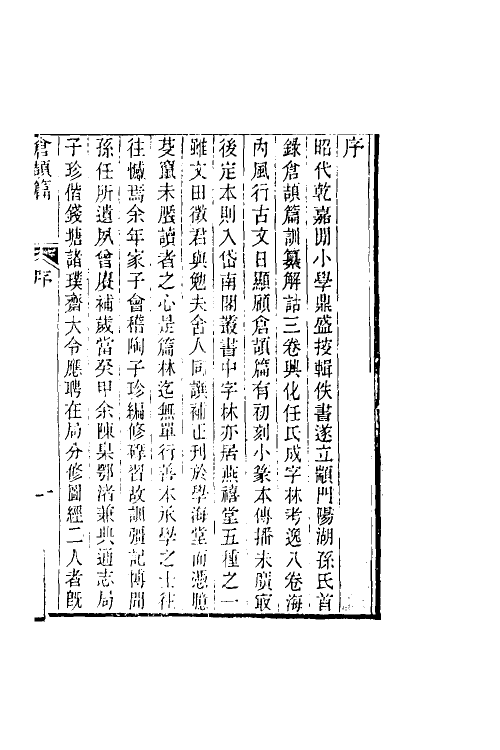 序
昭代乾嘉閒小學鼎盛掇輯佚書遂立顓門陽湖孫氏首
錄倉頡篇訓纂解詁三卷興化任氏成字林考逸八卷海
內風行古文日顯顧倉頡篇有初刻小篆本傳播未廣㝡
後定本則入岱南閣叢書中字林亦居燕禧堂五種之一
雖文田徵君與勉夫舍人同譔補正刊於學海堂而憑臆
芟竄未饜讀者之心是篇林迄無單行善本承學之士往
往憾焉余年家子會稽陶子珍編修硏習故訓彊記博聞
孫任所遺夙曾廣補歲當癸甲余陳臬鄂渚兼典通志局
子珍偕錢塘諸璞齋大令應聘在局分修圖經二人者旣
倉頡篇
序
一